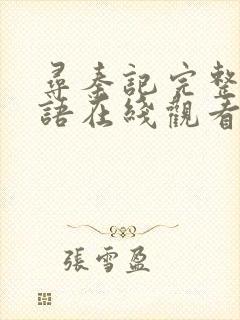 尋秦記完整
語在綫觀看
張雪盈